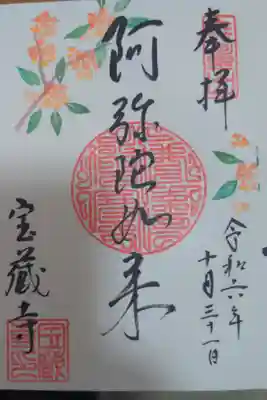 奉拝
令和六年
十月三十一日
阿弥陀如来
宝蔵寺